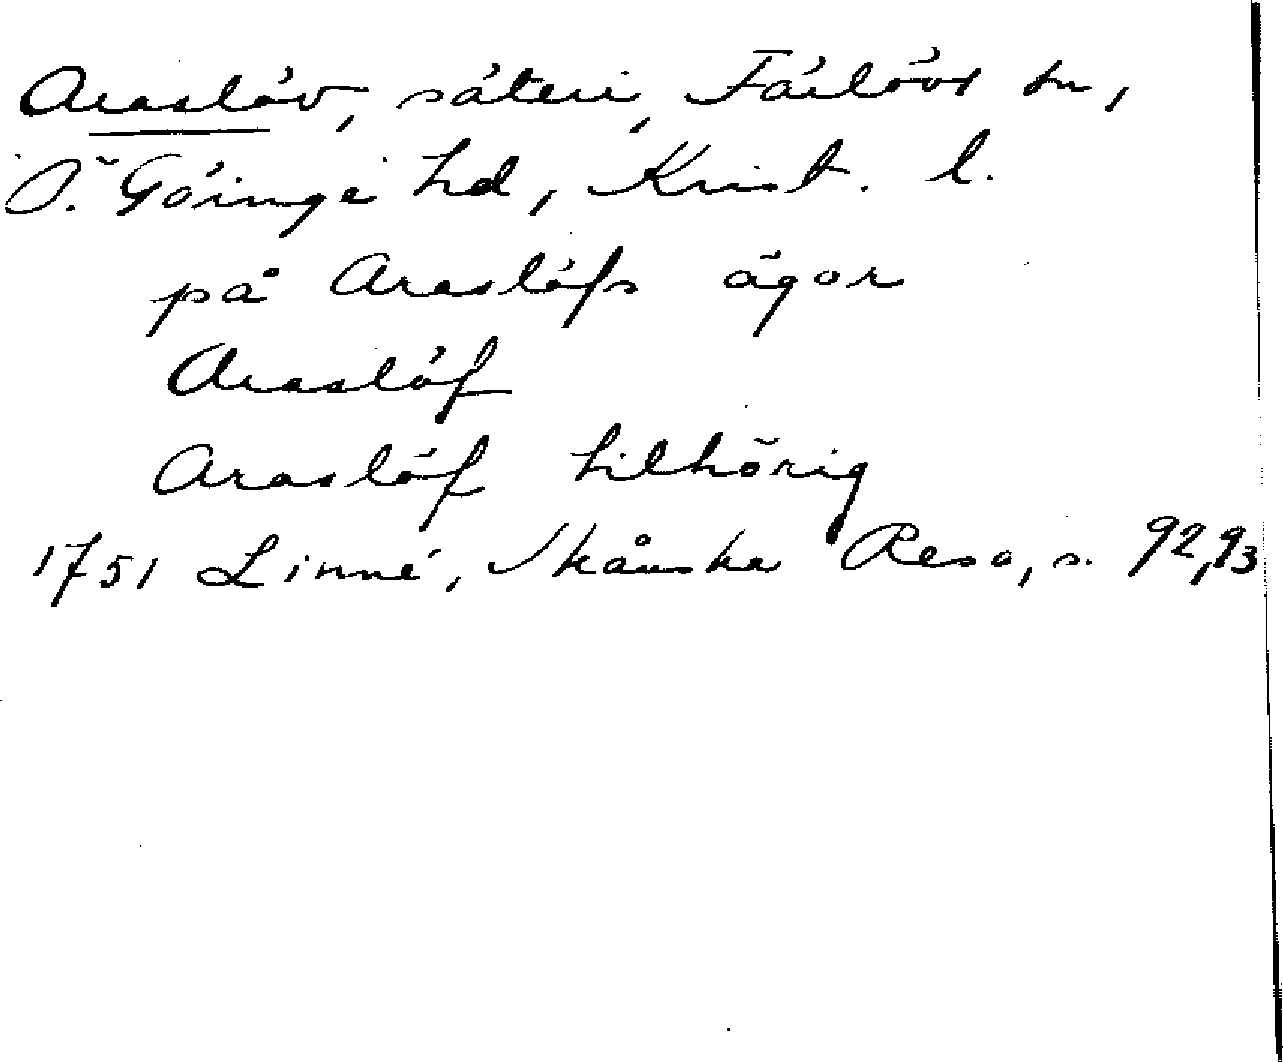 Araslöv, säteri, Färlövs sn,
Ö. Göinge hd, Krist. l.
på Araslöfs ägor
Araslöf
Araslöf tilhörig
1751 Linné, Skånska Resa, s. 92,93